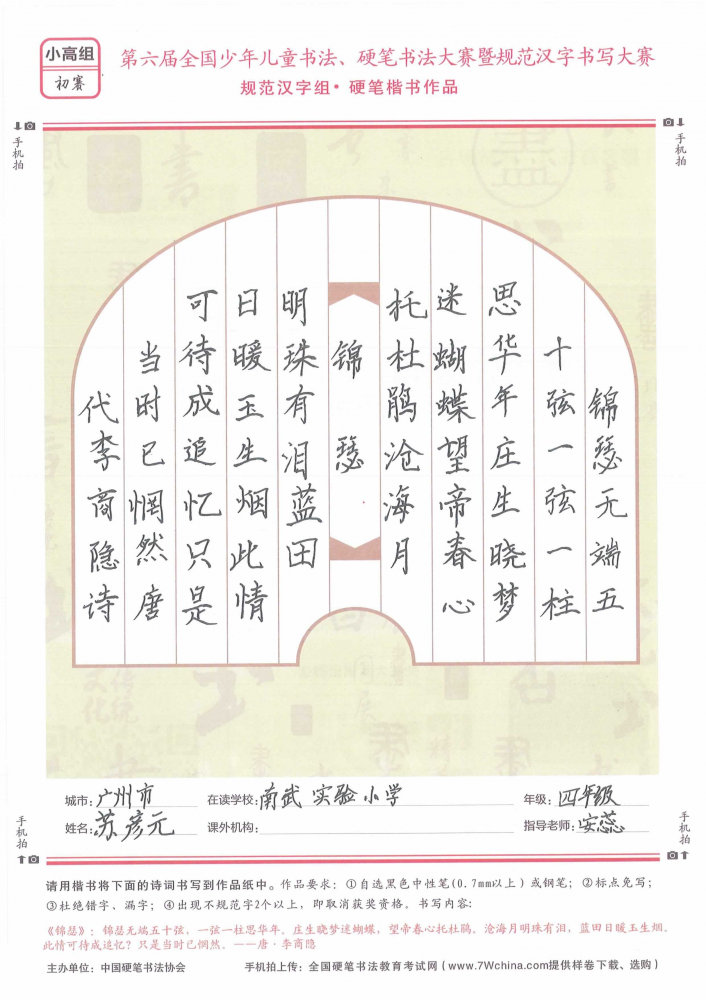 小高组
初赛
第六届全国少年儿童书法、硬笔书法大赛暨规范汉字书写大赛
规范汉字组•硬笔楷书作品
手机拍
手机拍
锦瑟无端五
十弦一弦一柱
思华年庄生晓梦
迷蝴蝶望帝春心
托杜鹃沧海月
锦瑟
明珠有泪蓝田
日暖玉生烟此情
可待成追忆只是
当时已惘然唐
代李商隐诗
城市:广州市 在读学校:南武实验小学 年级:四年级
姓名:苏彦元 课外机构: 指导老师:安蕊
手机拍
手机拍
请用楷书将下面的诗词书写到作品纸中。作品要求：①自选黑色中性笔(0.7mm以上)或钢笔；②标点免写；
③杜绝错字、漏字；④出现不规范字2个以上，即取消获奖资格。书写内容：
《锦瑟》：锦瑟无端五十弦，一弦一柱思华年。庄生晓梦迷蝴蝶，望帝春心托杜鹃。沧海月明珠有泪，蓝田日暖玉生烟。
此情可待成追忆？只是当时已惘然。——唐·李商隐
主办单位：中国硬笔书法协会 手机拍上传：全国硬笔书法教育考试网(www.7Wchina.com提供样卷下载、选购)